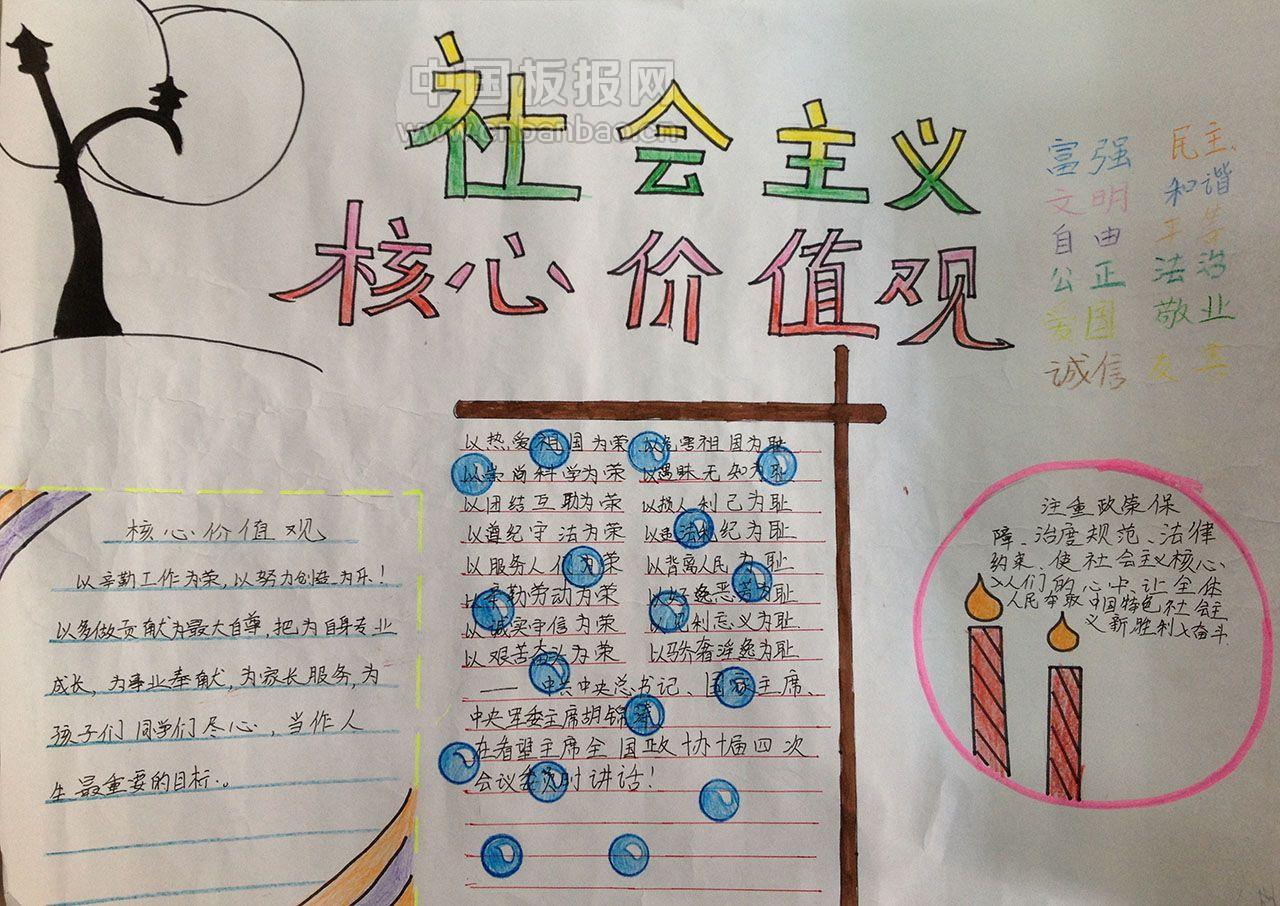 中国板报网
www.chpanbao.cn
社会主义
核心价值观
富强 民主
文明 和谐
自由 平等
公正 法治
爱国 敬业
诚信 友善
核心价值观
以辛勤工作为荣,以努力创造为乐!
以多做贡献为最大自尊,把为自身专业
成长,为事业奉献,为家长服务,为
孩子们同学们尽心,当作人
生最重要的目标。
以热爱祖国为荣 以危害祖国为耻
以崇尚科学为荣 以愚昧无知为耻
以团结互助为荣 以损人利己为耻
以遵纪守法为荣 以违法乱纪为耻
以服务人们为荣 以背离人民为耻
以辛勤劳动为荣 以好逸恶劳为耻
以诚实守信为荣 以见利忘义为耻
以艰苦奋斗为荣 以骄奢淫逸为耻
——中共中央总书记、国家主席、
中央军委主席胡锦涛
在看望主席全国政协十届四次
会议委员时讲话!
注重政策保
障、治度规范、法律
约束、使社会主义核心
入人们的心中让全体
人民夺取中国特色社会主
义新胜利 奋斗